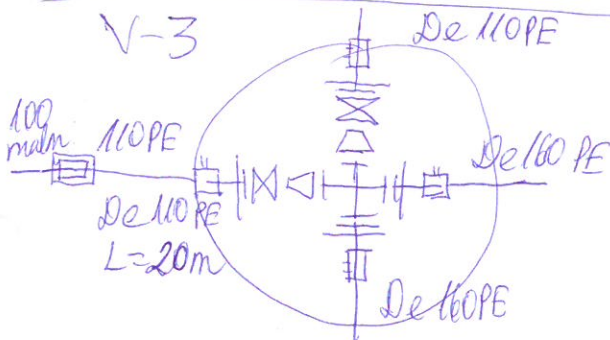 V-3
De 110PE
100
maln
110PE
De 160 PE
De 110PE
L=20m
De 160PE